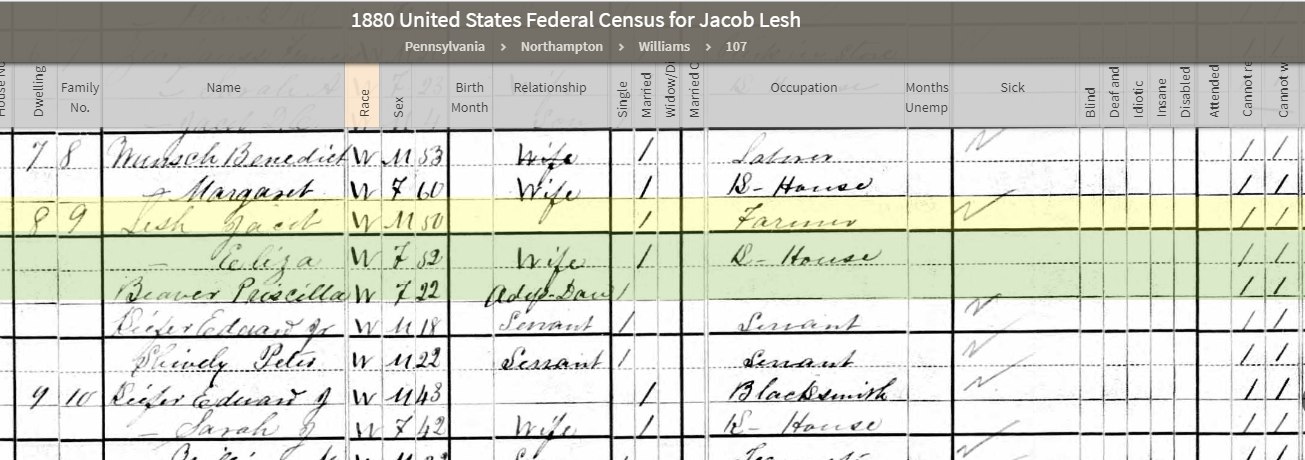 1880 United States Federal Census for Jacob Lesh
Pennsylvania > Northampton > Williams > 107
House No Dwelling Family No. Name Race Sex Birth Month Relationship Single Married Widow/Di Married C Occupation Months Unemp Sick Blind Deaf and Idiotic Insane Disabled Attended Cannot re Cannot w
7 8 Munsch Benedict W M 53 Wife / Laborer / /
— Margaret W F 60 Wife / K- House / /
8 9 Lesh Jacob W M 50 / Farmer / /
— Eliza W F 52 Wife / K- House / /
Beaver Priscilla W F 22 Adop-Dau / / /
Kiefer Edward Jr W M 18 Servant / Servant / /
Shively Peter W M 22 Servant / Servant / /
9 10 Kiefer Edward J W M 43 / Blacksmith / /
— Sarah J W F 42 Wife / K- House / /